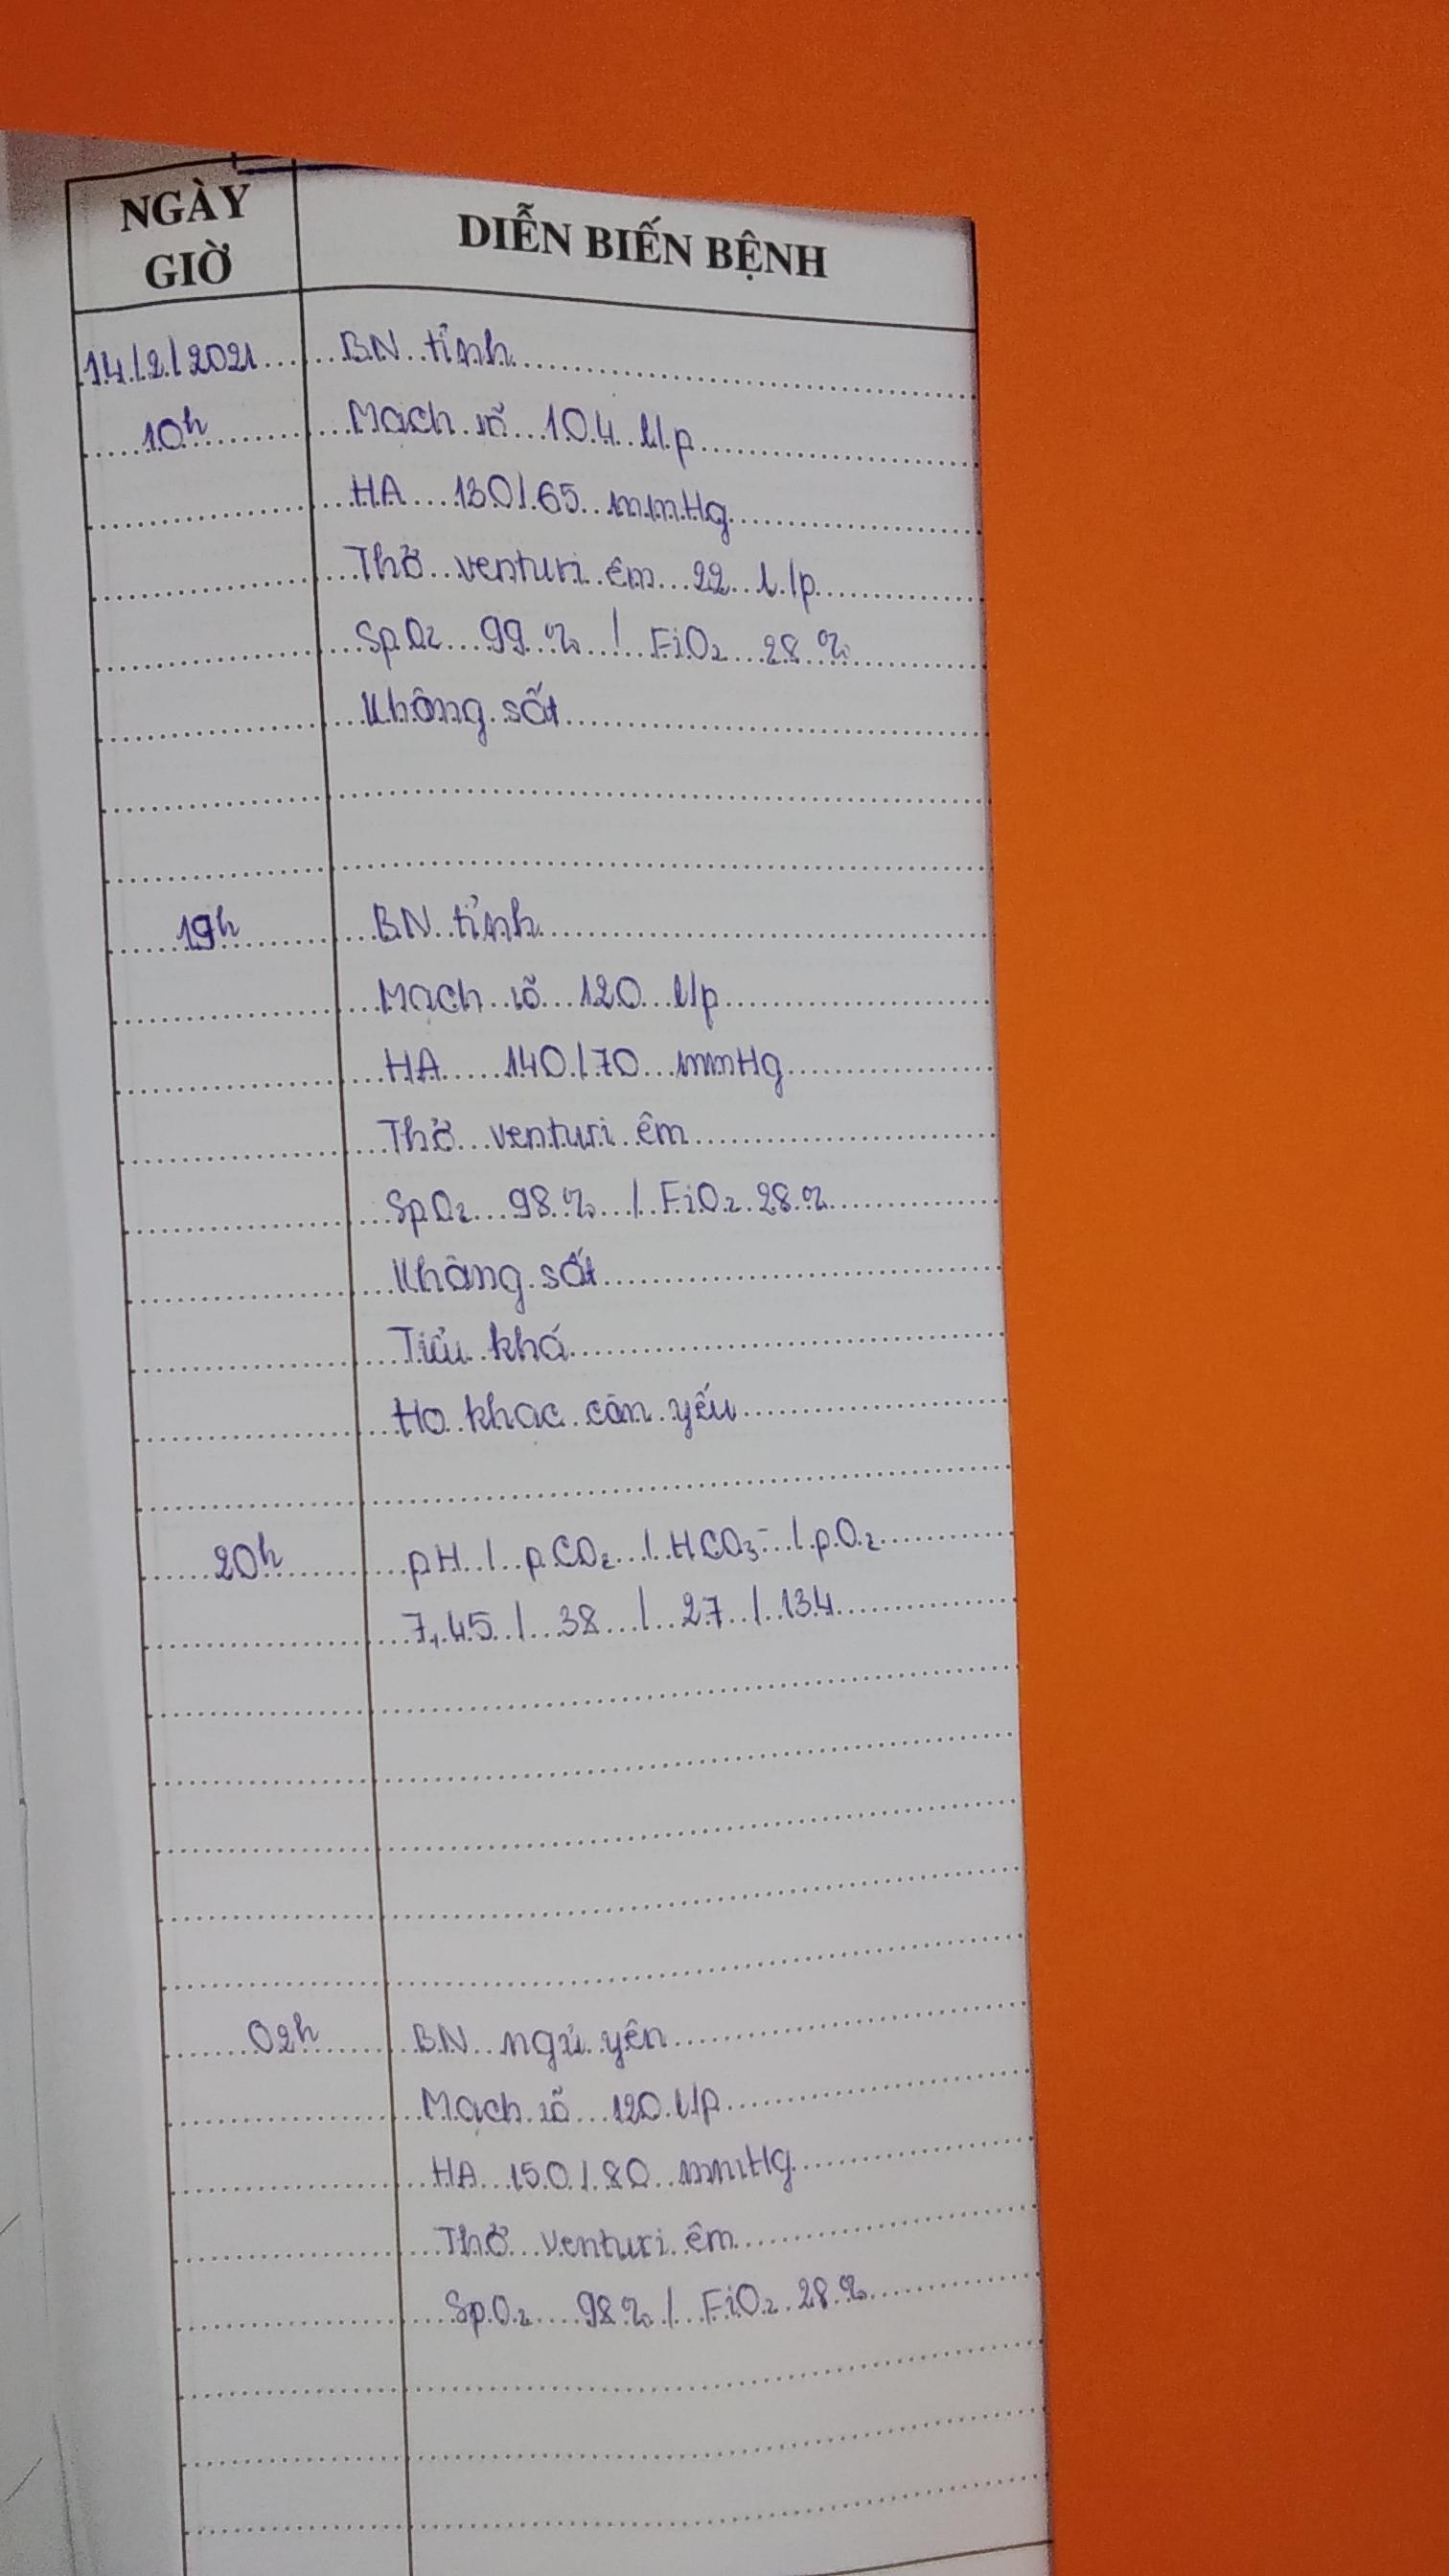 NGÀY GIỜ
DIỄN BIẾN BỆNH
14/2/2021 BN tỉnh
10h Mạch rõ 104 l/p
HA 130/65 mmHg
Thở venturi êm 22 l/p
SpO2 99% / FiO2 28%
Không sốt
19h BN tỉnh
Mạch rõ 120 l/p
HA 140/70 mmHg
Thở venturi êm
SpO2 98% / FiO2 28%
Không sốt
Tiểu khá
Ho khạc còn yếu
20h pH / pCO2 / HCO3- / pO2
7,45 / 38 / 27 / 134
02h BN ngủ yên
Mạch rõ 120 l/p
HA 150/80 mmHg
Thở venturi êm
SpO2 98% / FiO2 28%